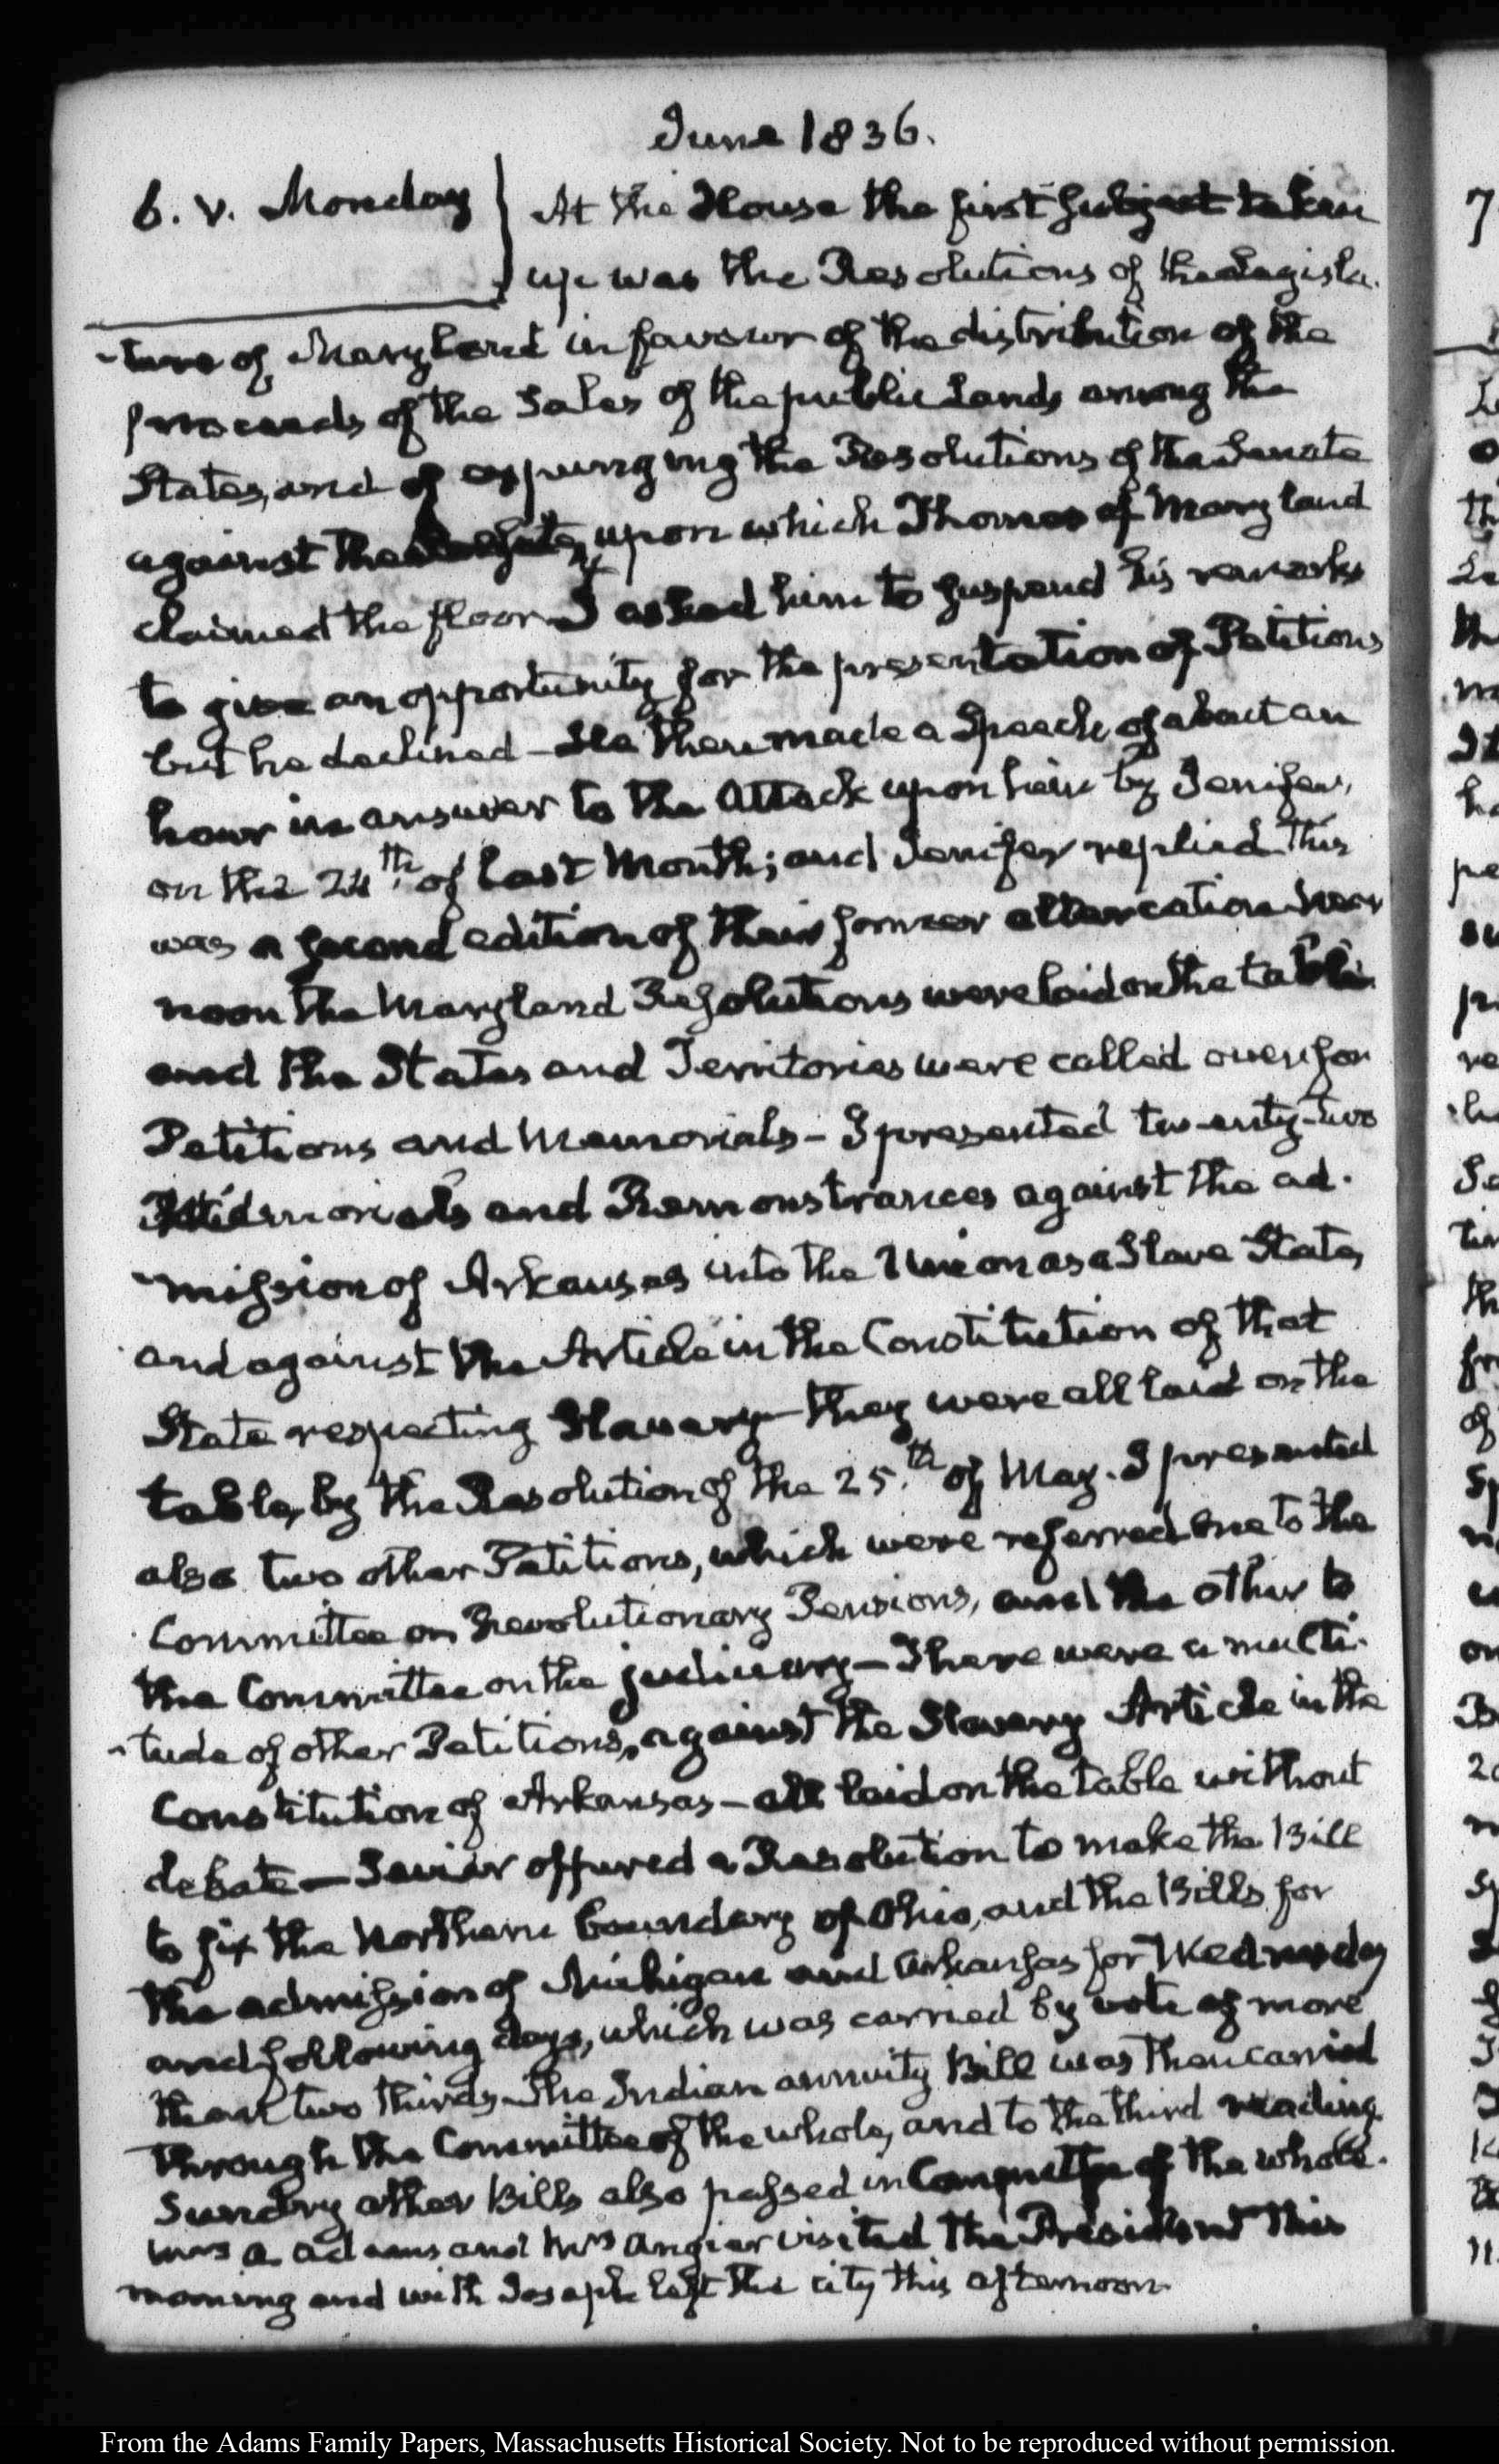 June 1836.
6. V. Monday
At the House the first subject taken
up was the Resolutions of the Legisla-
-ture of Maryland in favour of the distribution of the
proceeds of the Sales of the public Lands among the
States, and of expunging the Resolutions of the Senate
against the upon which Thomas of Maryland
claimed the floor I asked him to suspend his remarks
to give an opportunity for the presentation of Petitions
but he declined – He then made a Speech of about an
hour in answer to the attack upon him by Jenifer,
on the 24th. of last Month; and Jenifer replied This
was a second edition of their former altercation Near
noon the Maryland Resolutions were laid on the table
and the States and Territories were called over for
Petitions and Memorials – I presented twenty-two
and Remonstrances against the ad-
-mission of Arkansas into the Union as a Slave State,
and against the Article in the Constitution of that
State respecting Slavery – they were all laid on the
table, by the Resolution of the 25th. of May. I presented
also two other Petitions, which were referred one to the
Committee on Revolutionary Pensions, and the other to
the Committee on the judiciary – There were a multi-
-tude of other Petitions, against the Slavery Article in the
Constitution of Arkansas – all laid on the table without
debate – Sevier offered a Resolution to make the Bill
to fix the Northern boundary of Ohio, and the Bills for
the admission of Michigan and Arkansas for Wednesday
and following days, which was carried by vote of more
than two thirds – The Indian annuity Bill was then carried
through the Committee of the whole, and to the third reading.
Sundry other Bills also passed in Committee of the whole.
Mrs A Adams and Mrs Angier visited the President this
morning and with Joseph left the city this afternoon.
From the Adams Family Papers, Massachusetts Historical Society. Not to be reproduced without permission.